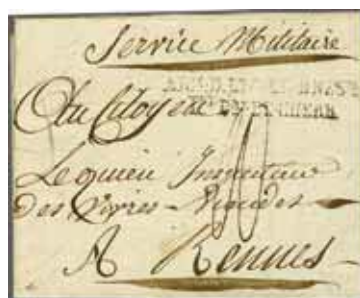 Service Militaire
Au Citoyen
Lequieu Inspecteur
des vivres - viandes -
A Rennes -